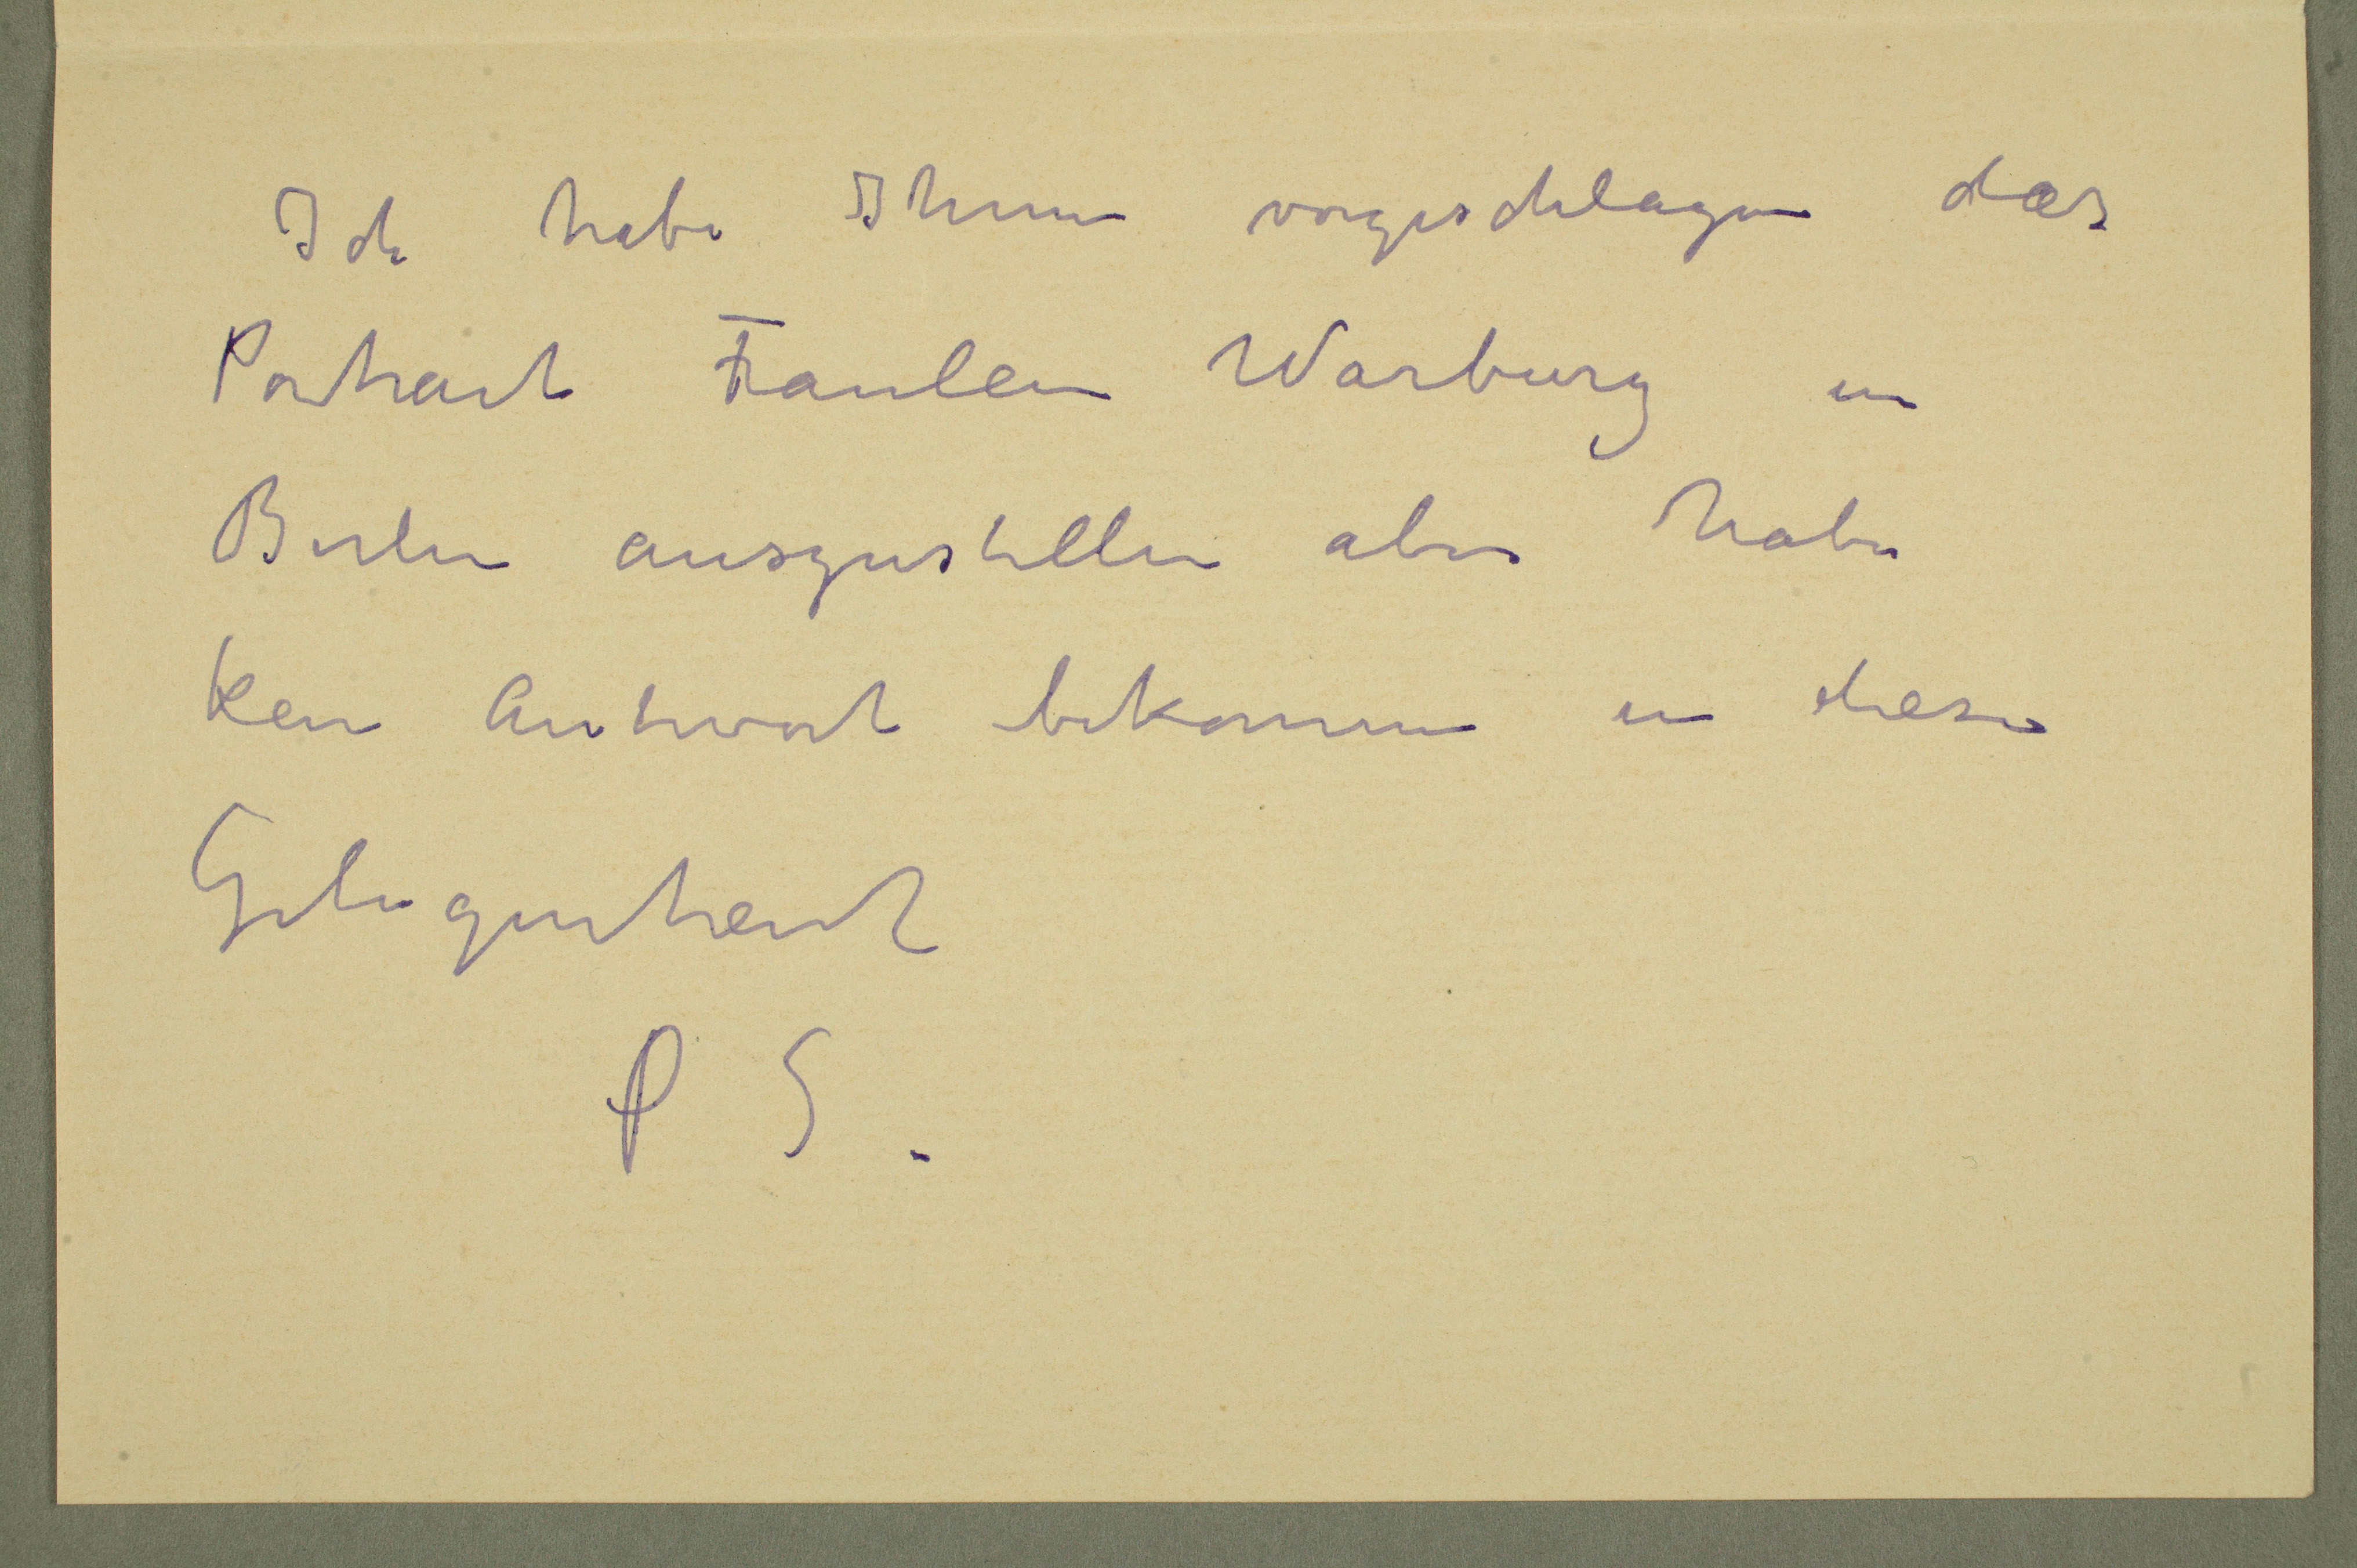 Ich habe Ihnen vorgeschlagen das
Portrait Fraulein Warburg in
Berlin auszustellen aber habe
kein Antwort bekommen in dieser
Gelegenheit
P S.